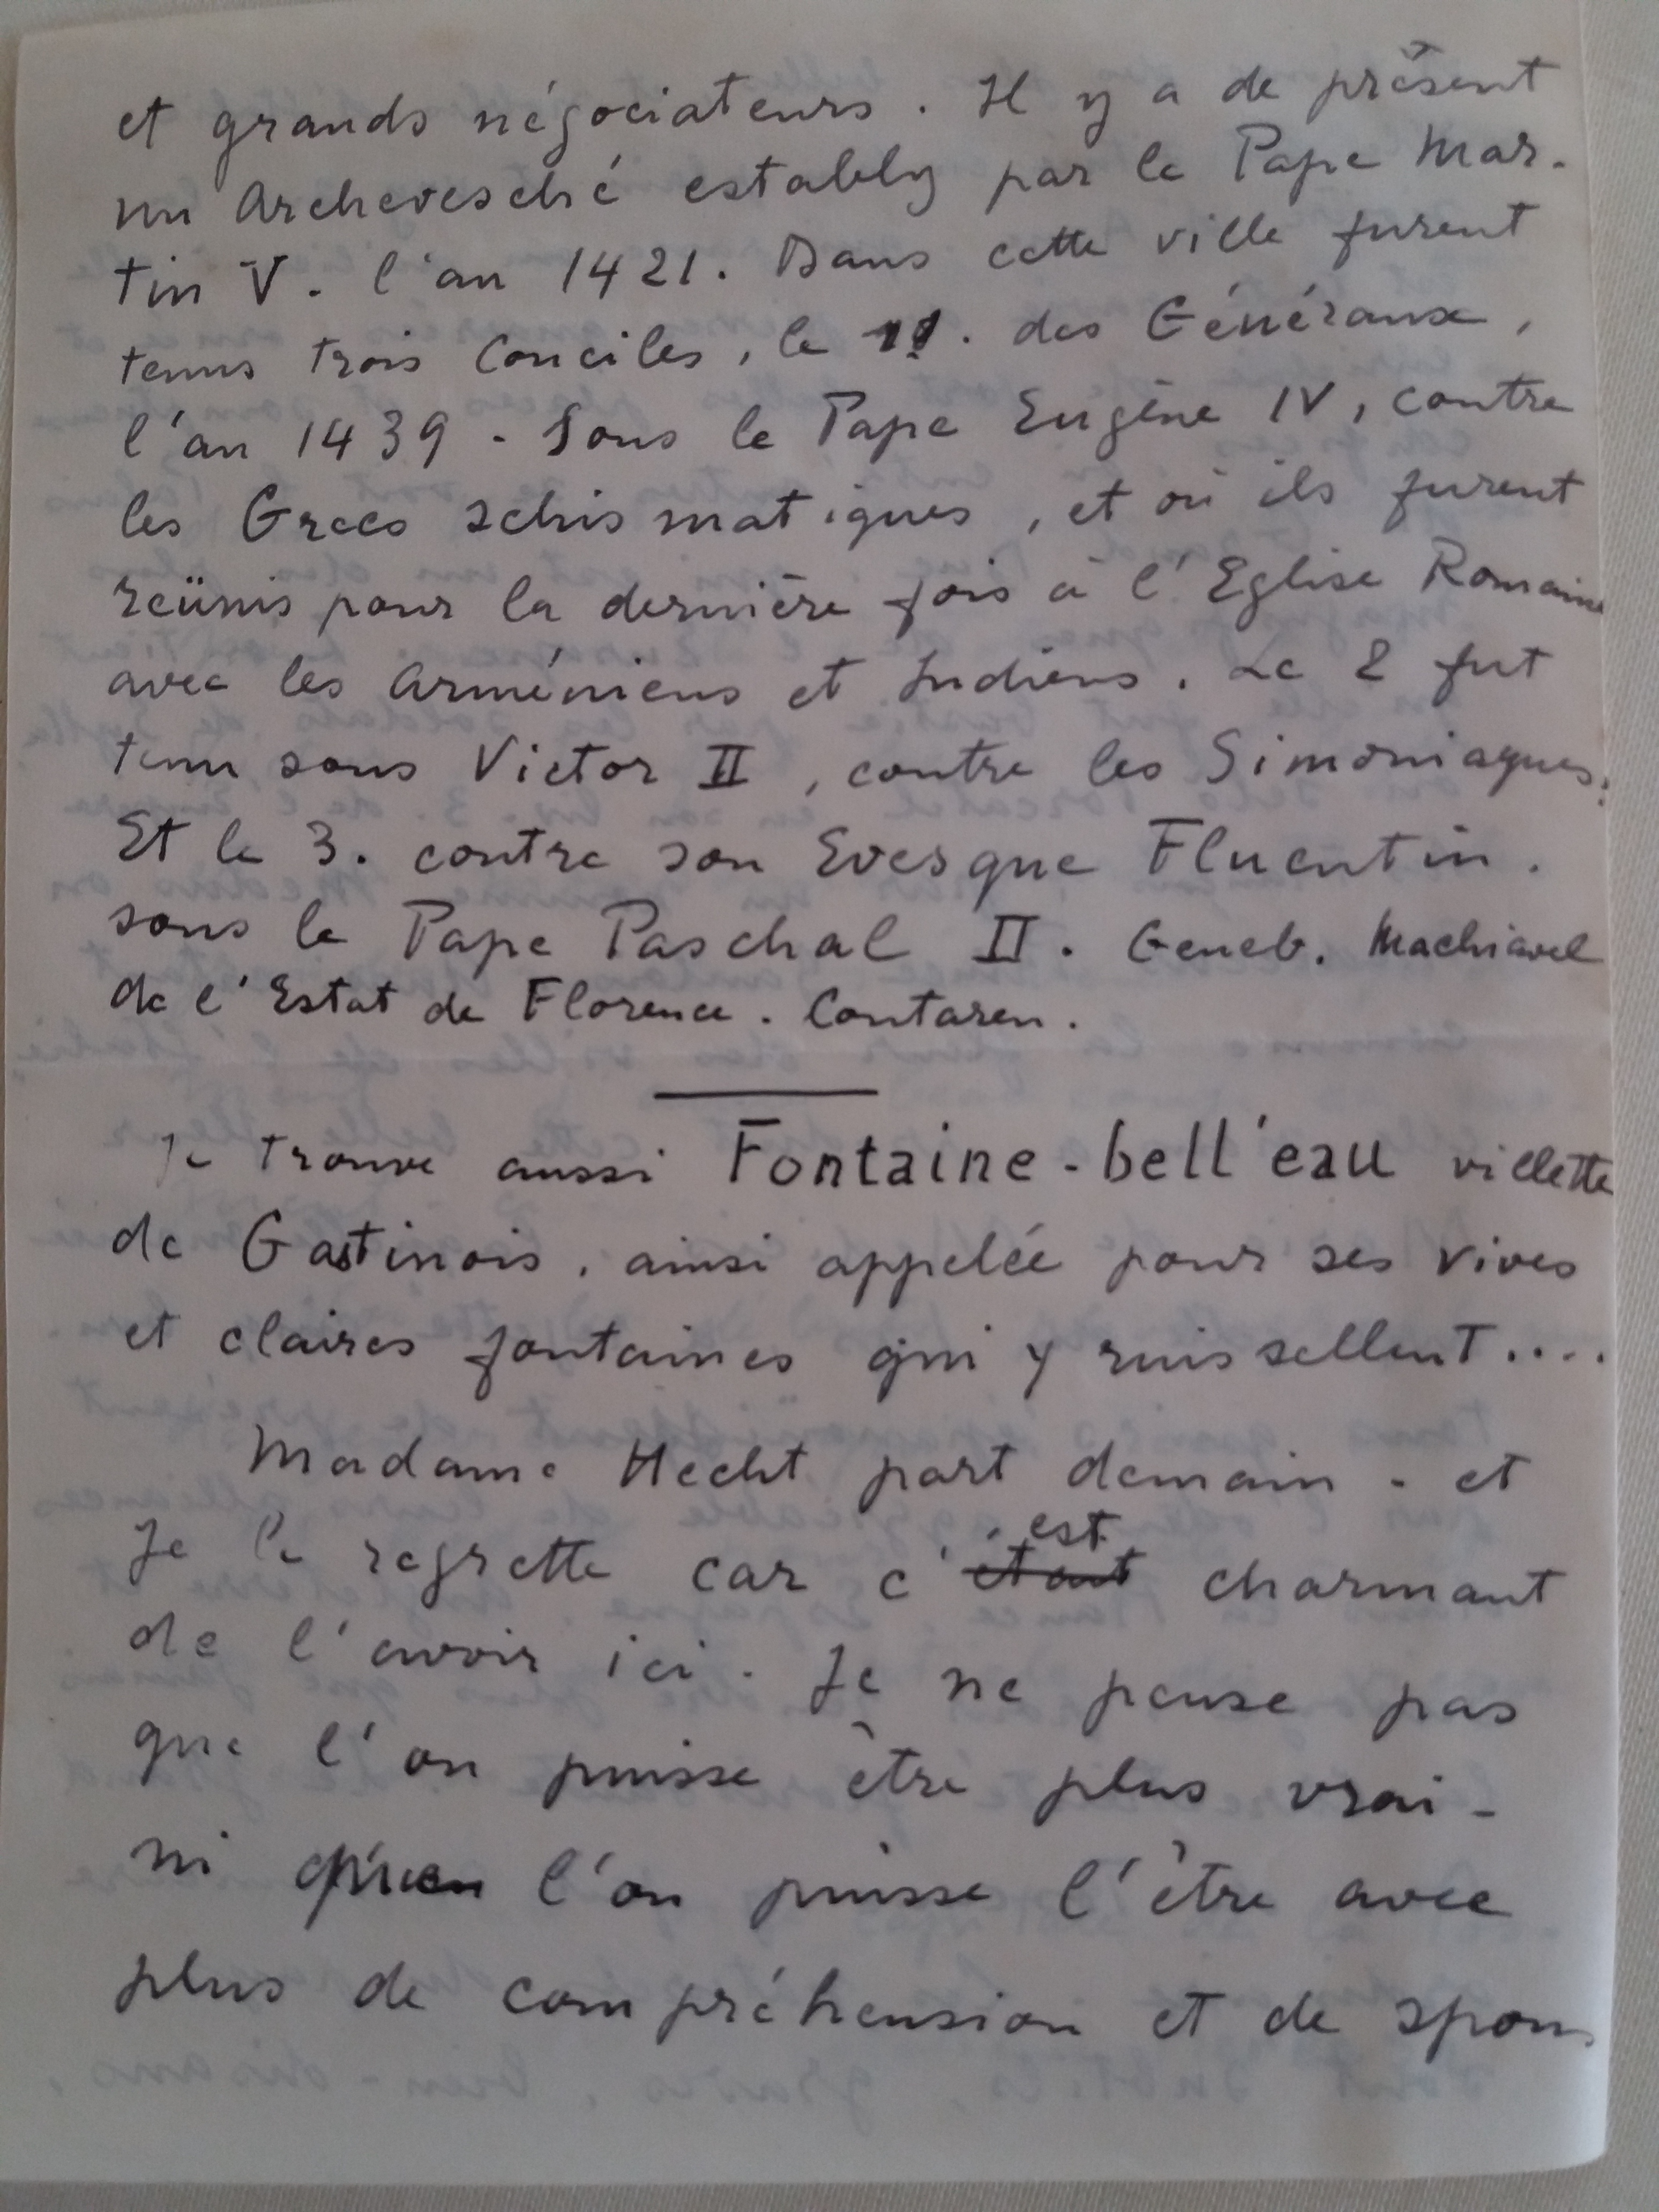 et grands négociateurs. Il y a de présent
un Archevesché establly par le Pape Mar-
tin V. l'an 1421. Dans cette ville furent
tenus trois Conciles, le . des Généraux,
l'an 1439 - Sous le Pape Eugène IV, contre
les Grecs schismatiques, et où ils furent
reünis pour la dernière fois à l'Eglise Romaine
avec les Arméniens et Indiens. Le 2 fut
tenu sous Victor II, contre les Simoniaques.
Et le 3. contre son Evesque Fluentin.
sous le Pape Paschal II. Geneb. Machiavel
de l'Estat de Florence. Contaren.
Je trouve aussi Fontaine-bell'eau villette
de Gastinois, ainsi appelée pour ses vives
et claires fontaines qui y ruissellent....
Madame Hecht part demain - et
Je le regrette car c'étant est charmant
de l'avoir ici. Je ne pense pas
que l'on puisse être plus vrai -
ni l'on puisse l'être avec
plus de compréhension et de spon